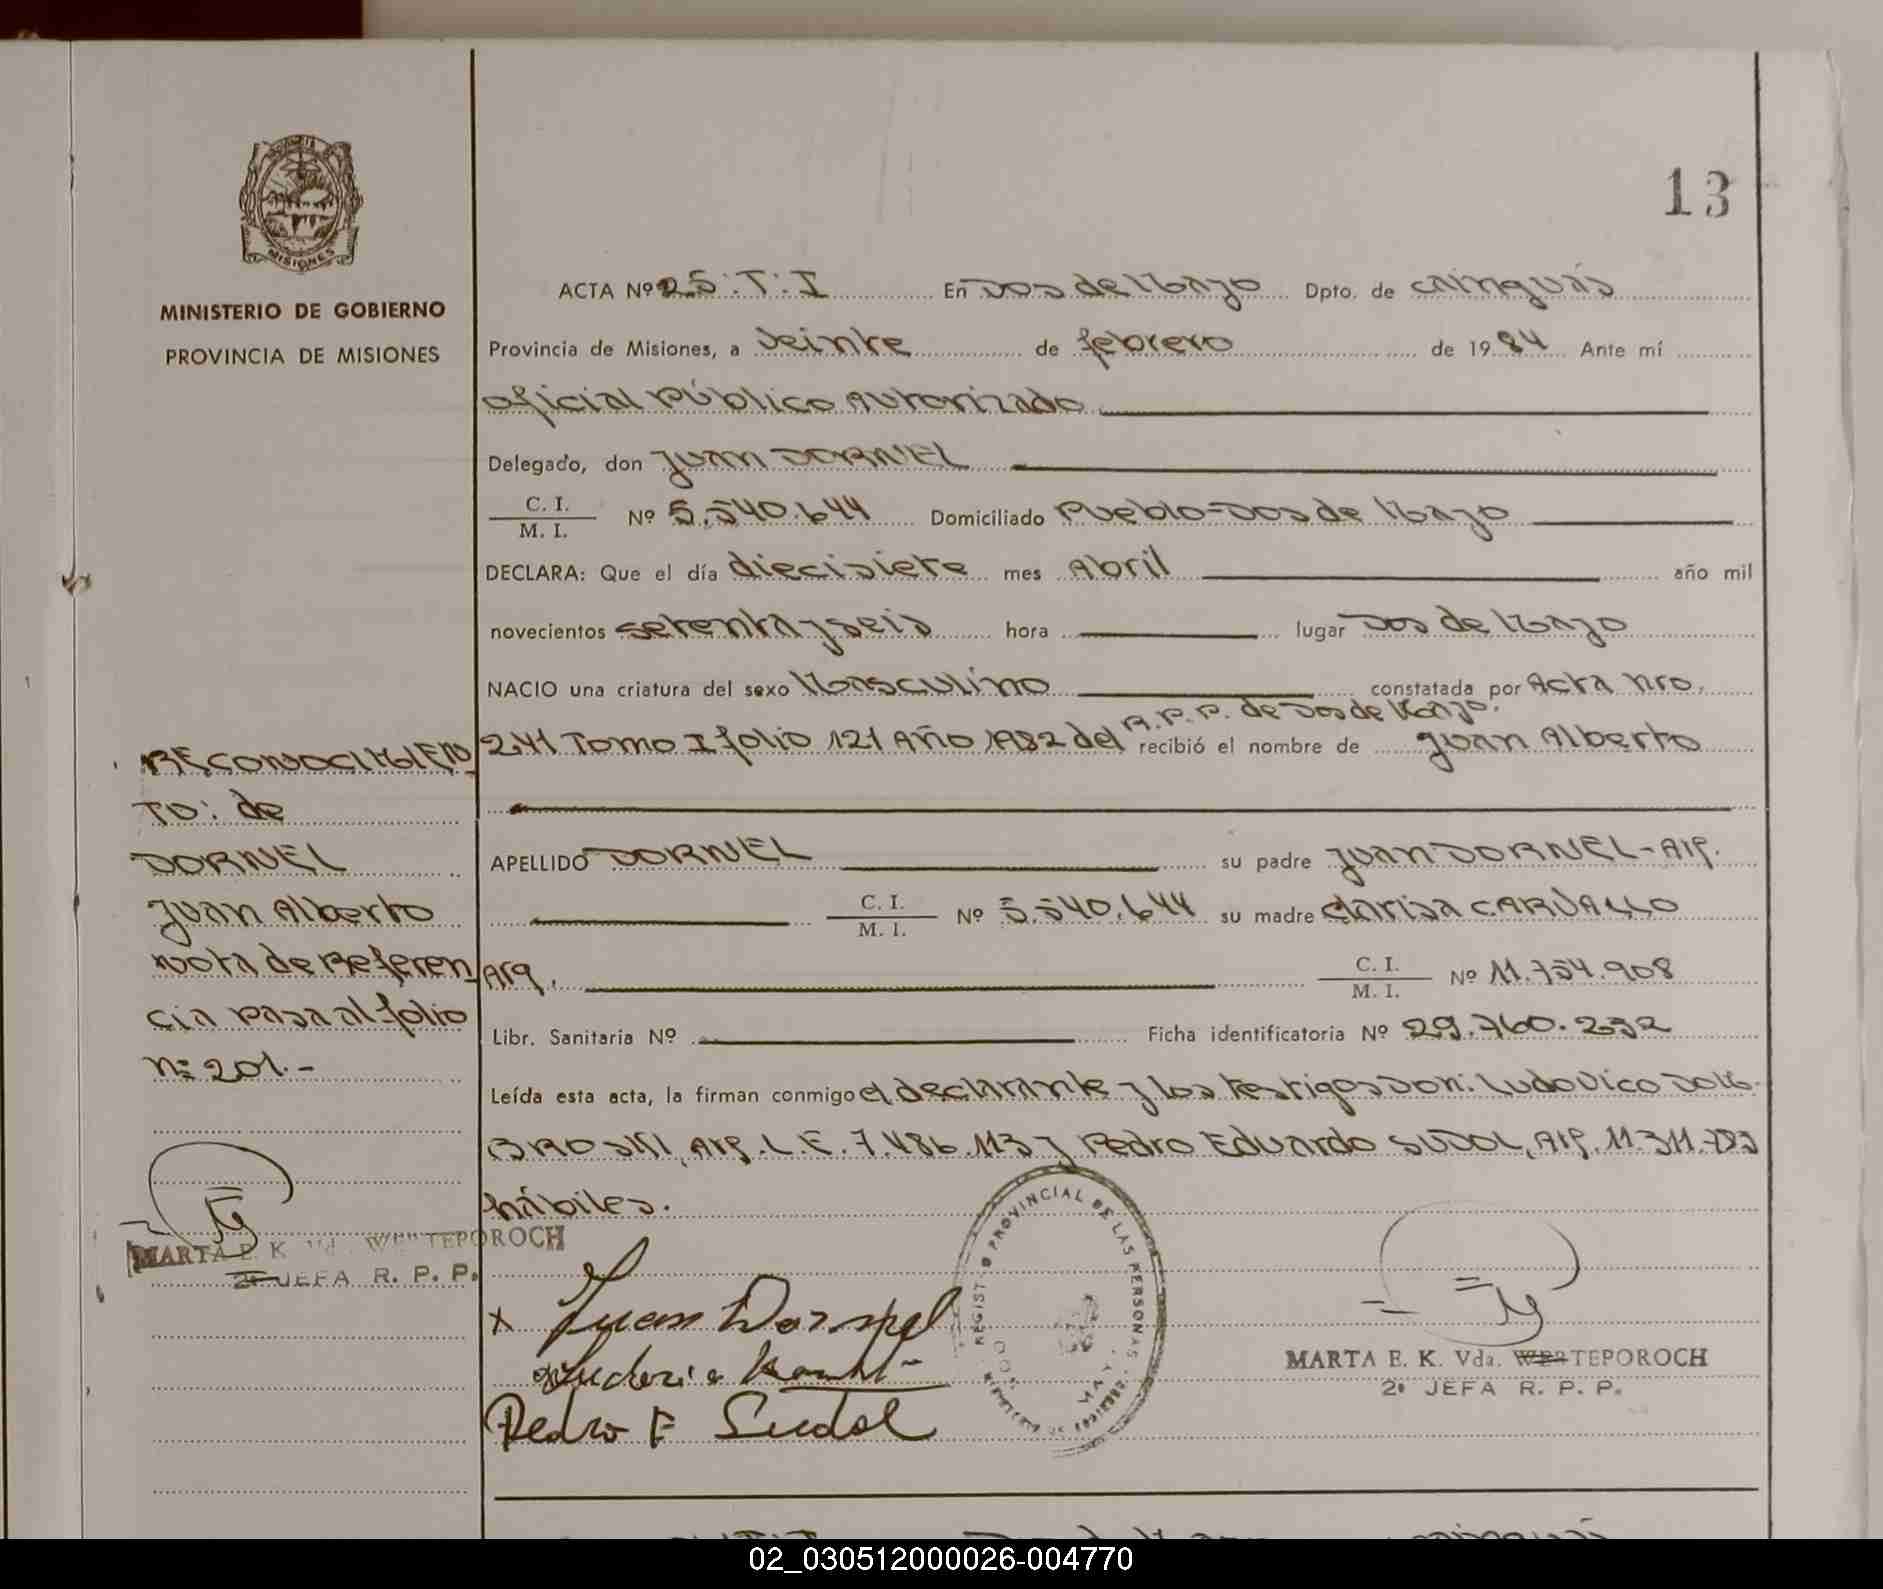 13
MISIONES
MINISTERIO DE GOBIERNO
PROVINCIA DE MISIONES
ACTA Nº 25.T.I En Dos de Mayo Dpto. de Cainguás
Provincia de Misiones, a veinte de febrero de 1984 Ante mí
oficial Público Autorizado
Delegado, don Juan DORNEL
C. I.
M. I. Nº 5.540.644 Domiciliado Pueblo-Dos de Mayo
DECLARA: Que el día diecisiete mes Abril año mil
novecientos setenta y seis hora lugar Dos de Mayo
NACIO una criatura del sexo Masculino constatada por Acta Nro.
241 Tomo I folio 121 Año 1982 del R.P.P. de Dos de Mayo. recibió el nombre de Juan Alberto
APELLIDO DORNEL su padre Juan DORNEL-Arg.
C. I.
M. I. Nº 5.540.644 su madre Clarisa CARVALLO
Arg. C. I.
M. I. Nº 11.754.908
Libr. Sanitaria Nº Ficha identificatoria Nº 29.760.232
Leída esta acta, la firman conmigo el declarante y los testigos Don: Ludovico DOM-
BROSKI, Arg. L.E. 7.486.113 y Pedro Eduardo SUDOL, Arg. 11.311.783
hábiles.
RECONOCIMIEN-
TO: de
DORNEL
Juan Alberto
Nota de Referen-
cia pasa al folio
nº 201.-
MARTA E. K. Vda. WESTEPOROCH
2º JEFA R. P. P.
x Juan Dornel
Pedro E Sudol
REGISTRO PROVINCIAL DE LAS PERSONAS
MARTA E. K. Vda. WESTEPOROCH
2º JEFA R. P. P.
02_030512000026-004770